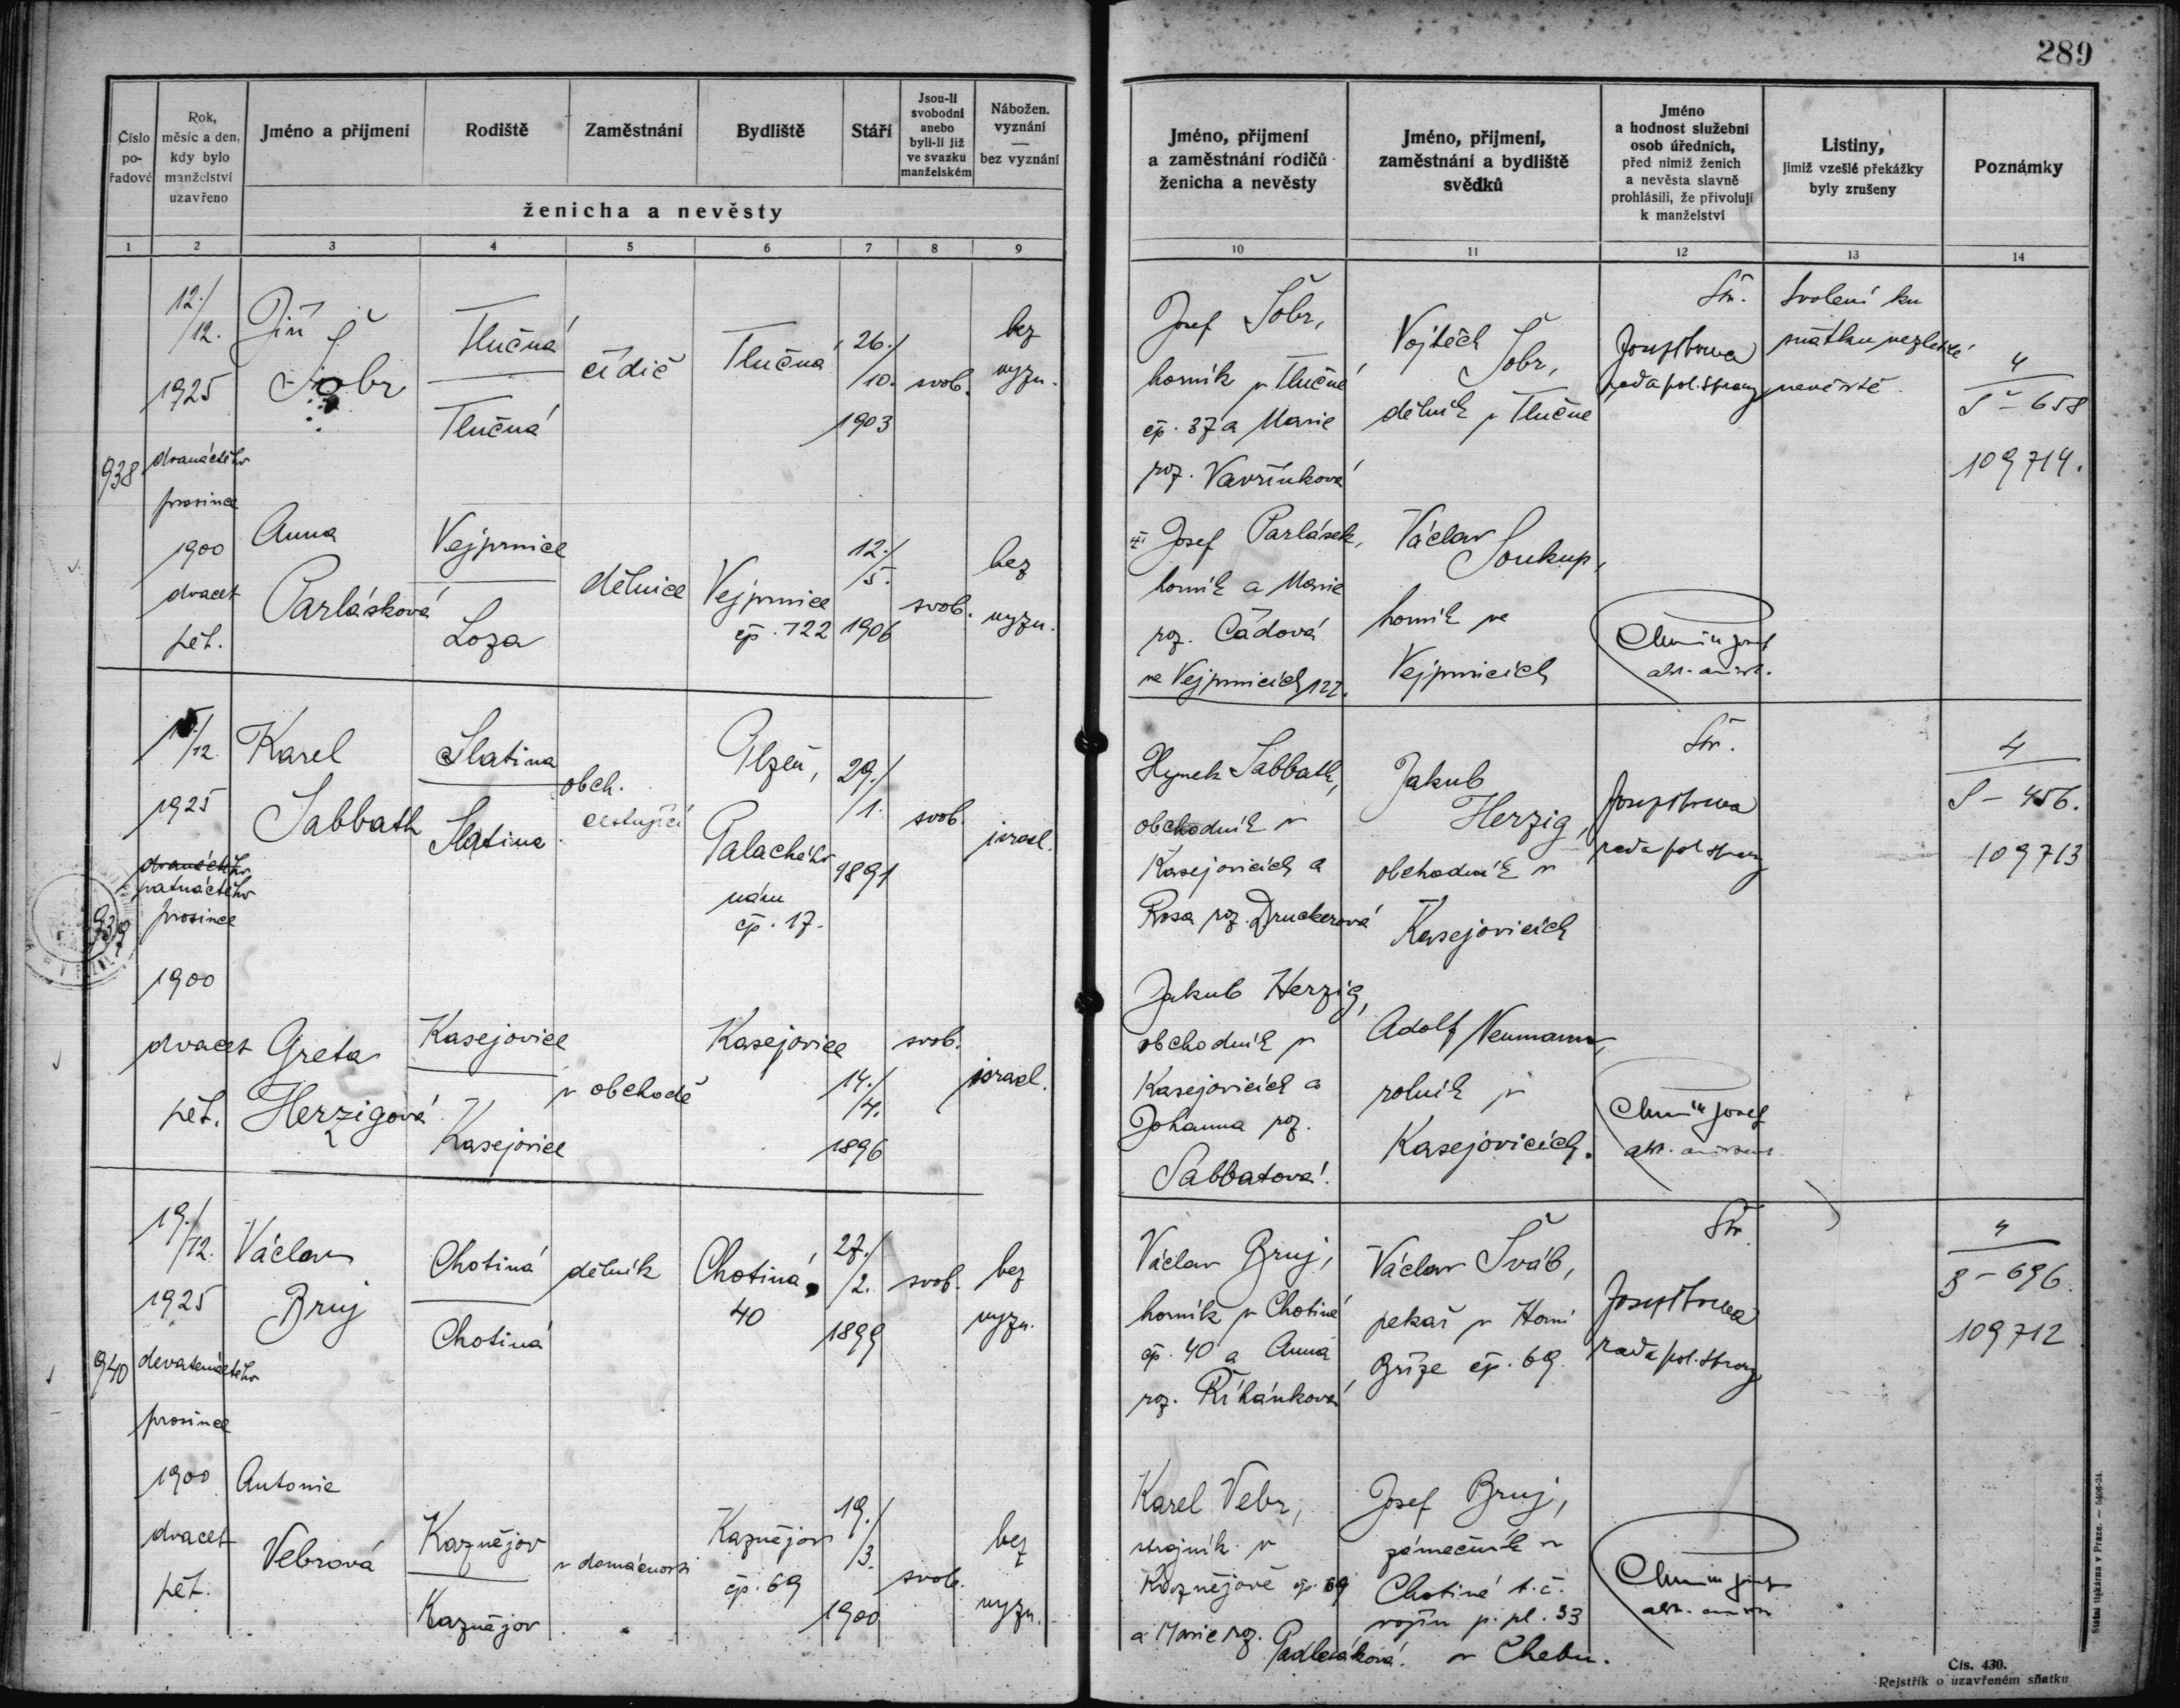 289
Číslo pořadové
Rok, měsíc a den, kdy bylo manželství uzavřeno
Jméno a příjmení
Rodiště
Zaměstnání
Bydliště
Stáří
Jsou-li svobodni anebo byli-li již ve svazku manželském
Nábožen. vyznání — bez vyznání
ženicha a nevěsty
Jméno, příjmení a zaměstnání rodičů ženicha a nevěsty
Jméno, příjmení, zaměstnání a bydliště svědků
Jméno a hodnost služební osob úředních, před nimiž ženich a nevěsta slavně prohlásili, že přivolují k manželství
Listiny, jimiž vzešlé překážky byly zrušeny
Poznámky
1 2 3 4 5 6 7 8 9 10 11 12 13 14
938.
12./12.
1925
dvanáctého
prosince
1900
dvacet
pět.
Jiří
Šobr
Tlučná
Tlučná
čidič
Tlučná
26./10.
1903
svob.
bez
vyzn.
Josef Šobr,
horník v Tlučné
čp. 37 a Marie
roz. Vavřínková
Vojtěch
Šobr,
dělník v Tlučné
rada pol. správy
Svolení ku
sňatku nezletilé
nevěstě.
4
Š - 658
109714.
Anna
Parlásková
Vejprnice
Loza
dělnice
Vejprnice
čp. 122
12./5.
1906
svob.
bez
vyzn.
Josef Parlásek,
horník a Marie
roz. Čádová
ve Vejprnicích 122.
Václav
Soukup,
horník ve
Vejprnicích
939
15/12.
1925
dvanáctého
patnáctého
prosince
1900
dvacet
pět.
Karel
Sabbath
Slatina
Slatina
obch.
cestující
Plzeň,
Palackého
nám
čp. 17.
29./1.
1891
svob.
israel.
Hynek Sabbath,
obchodník v
Kasejovicích a
Rosa roz. Druckerová
Jakub
Herzig,
obchodník v
Kasejovicích
rada pol. správy
4
S - 456.
109713
Greta
Herzigová
Kasejovice
Kasejovice
v obchodě
Kasejovice
14./7.
1896
svob.
israel.
Jakub Herzig,
obchodník v
Kasejovicích a
Johanna roz.
Sabbatová.
Adolf Neumann,
rolník v
Kasejovicích.
940
19./12.
1925
devatenáctého
prosince
1900
dvacet
pět.
Václav
Bruj
Chotiná
Chotiná
dělník
Chotiná,
40
27./2.
1899
svob.
bez
vyzn.
Václav Bruj,
horník v Chotiné
čp. 40 a Anna
roz. Říhánková
Václav Šváb,
pekař v Horní
Bříze čp. 69.
rada pol. správy
4
B - 696.
109712
Antonie
Vebrová
Kaznějov
Kaznějov
v domácnosti
Kaznějov
čp. 69
19./3.
1900
svob.
bez
vyzn.
Karel Vebr,
strojník v
Kaznějově čp. 69
a Marie roz.
Josef Bruj,
zámečník v
Chotiné t. č.
vojín p. pl. 33
v Chebu.
Státní tiskárna v Praze. — 5406-24.
Čís. 430.
Rejstřík o uzavřeném sňatku